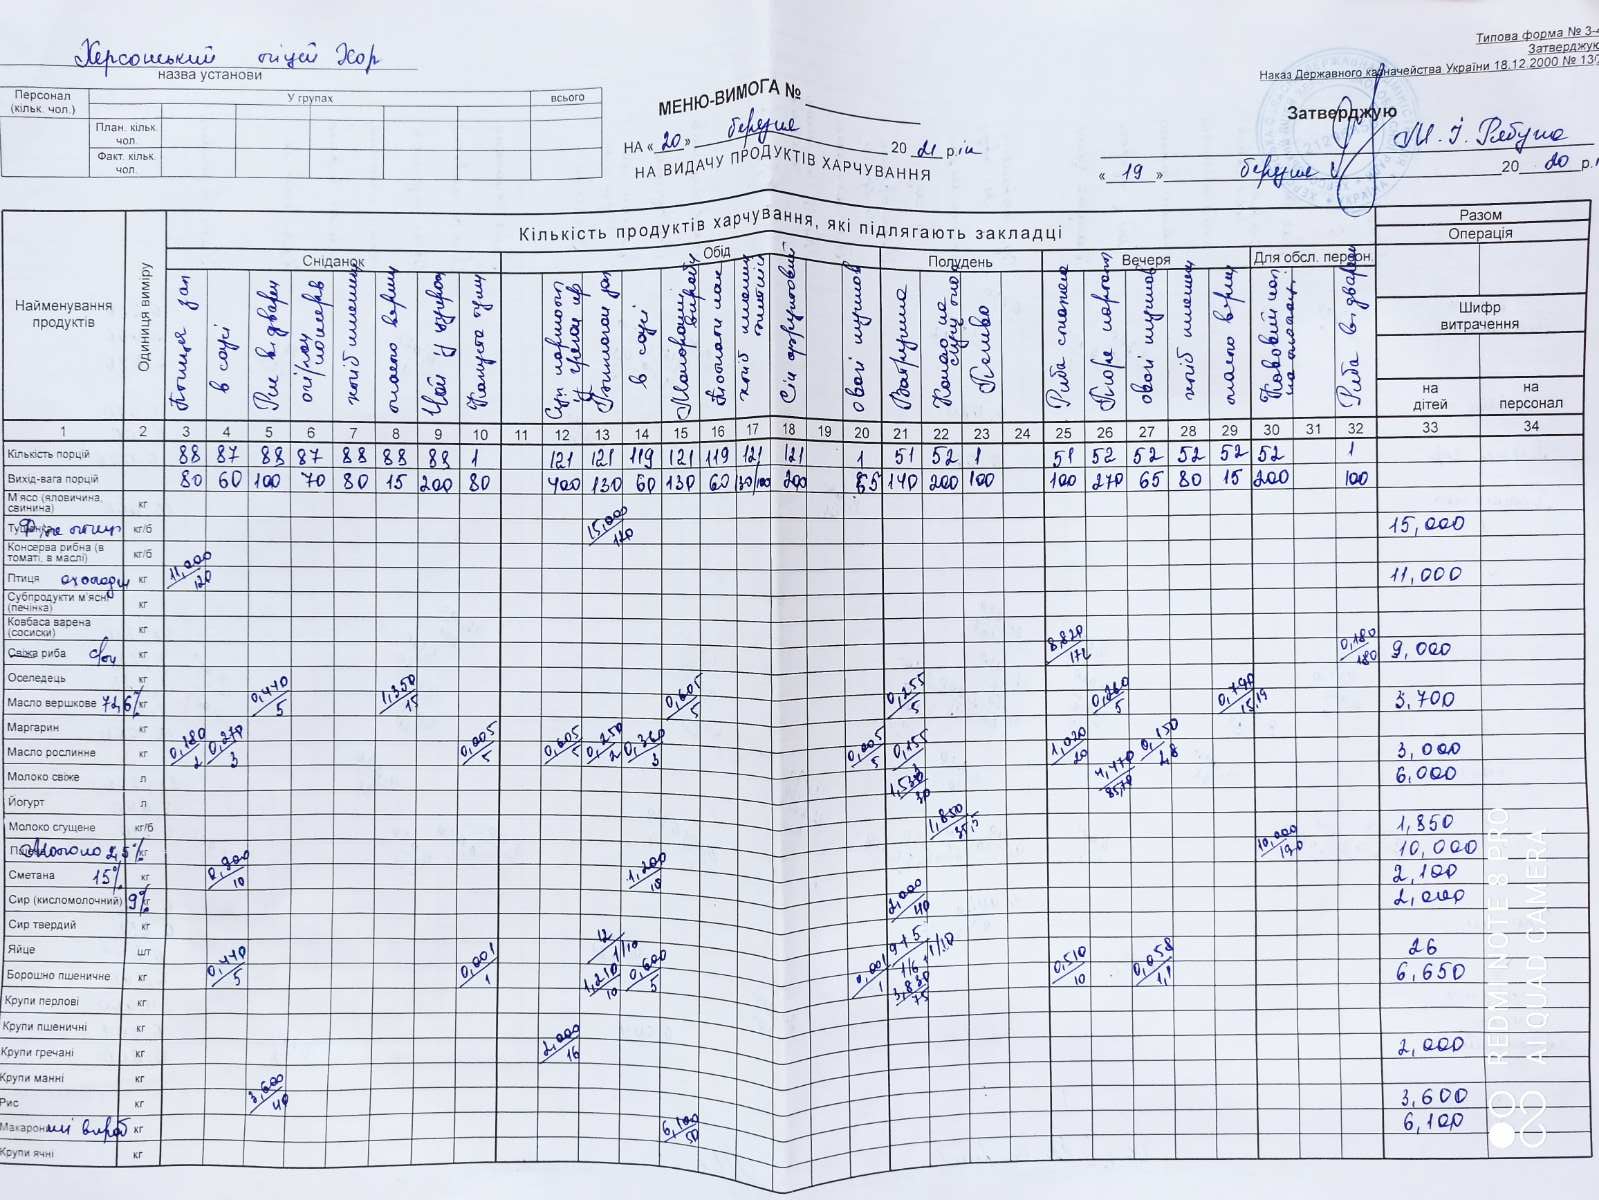 Типова форма № 3-
Затверджую
Наказ Державного казначейства України 18.12.2000 № 13
Херсонський ліцей ХОР
назва установи
Персонал (кільк. чол.)
У групах
всього
План. кільк. чол.
Факт. кільк. чол.
МЕНЮ-ВИМОГА №
НА «20» березня 2021 р.
НА ВИДАЧУ ПРОДУКТІВ ХАРЧУВАННЯ
Затверджую
«19» березня 2020 р.
Кількість продуктів харчування, які підлягають закладці
Разом
Операція
Сніданок
Обід
Полудень
Вечеря
Для обсл. персон.
Найменування продуктів
Одиниця виміру
Птиця зап
в соусі
Рис відварен
хліб пшенич
масло верш
Чай з цукром
в соусі
Макаронні вироби
Ватрушка
Печиво
Риба
Пюре картоп
масло верш
Риба відварен
Шифр витрачення
на дітей
на персонал
1 2 3 4 5 6 7 8 9 10 11 12 13 14 15 16 17 18 19 20 21 22 23 24 25 26 27 28 29 30 31 32 33 34
Кількість порцій 88 87 88 87 88 88 88 1 121 121 119 121 119 121 121 1 51 52 1 51 52 52 52 52 52 1
Вихід-вага порцій 80 60 100 70 80 15 200 80 400 130 60 130 60 30/100 200 65 140 200 100 100 270 65 80 15 200 100
М'ясо (яловичина, свинина) кг
Філе птиці кг/б 15,000/120 15,000
Консерва рибна (в томаті, в маслі) кг/б
Птиця охолодж кг 11,000/120 11,000
Субпродукти м'ясні (печінка) кг
Ковбаса варена (сосиски) кг
Свіжа риба с/м кг 8,820/172 0,180/180 9,000
Оселедець кг
Масло вершкове 72,6% кг 0,440/5 1,350/15 0,605/5 0,255/5 0,260/5 0,790/15,19 3,700
Маргарин кг
Масло рослинне кг 0,180/2 0,270/3 0,005/5 0,605/5 0,250/2 0,360/3 0,005/5 0,155/3 1,020/20 0,150/2,8 3,000
Молоко свіже л 1,530/30 4,470/85,70 6,000
Йогурт л
Молоко сгущене кг/б 1,850/35,5 1,850
Молоко 2,5% кг 10,000/190 10,000
Сметана 15% кг 0,900/10 1,200/10 2,100
Сир (кисломолочний) 9% кг 2,000/40 2,000
Сир твердий кг
Яйце шт 12 1/10 9+5 1/6 1/10 26
Борошно пшеничне кг 0,440/5 0,001/1 1,210/10 0,600/5 0,001/1 3,830/75 0,510/10 0,058/1,1 6,650
Крупи перлові кг
Крупи пшеничні кг
Крупи гречані кг 2,000/16 2,000
Крупи манні кг
Рис кг 3,600/40 3,600
Макаронні вироб кг 6,100/50 6,100
Крупи ячні кг
REDMI NOTE 8 PRO
AI QUAD CAMERA